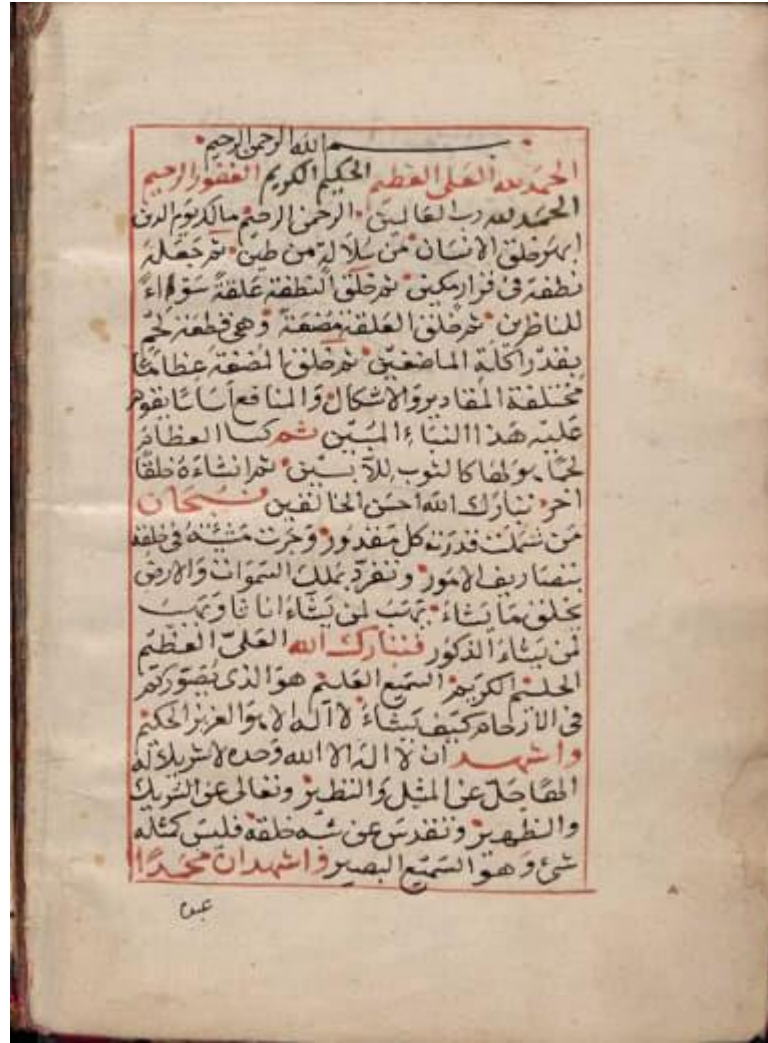 بسم الله الرحمن الرحيم
الحمد لله العلى العظيم الحكيم الكريم الغفور الرحيم
الحمد لله رب العالمين الرحمن الرحيم مالك يوم الدين
خلق الانسان من سلالة من طين ثم جعله
نطفة فى قرار مكين ثم خلق النطفة علقة سوداءً
للناظرين ثم خلق العلقة مضغة وهى قطعة لحم
بقدر اكلة الماضغين ثم خلق المضغة عظاماً
مختلفة المقادير والاشكال والمنافع اساسا يقوم
عليه هذا البناء المبين ثم كسا العظام
لحما هو لها كالثوب للابسين ثم انشاءه خلقا
اخر تبارك الله احسن الخالقين فسبحان
من شملت قدرته كل مقدور وجرت مشيئته فى خلقه
بتصاريف الامور وتفرد بملك السموات والارض
يخلق ما يشاء يهب لمن يشاء اناثا ويهب
لمن يشاء الذكور فتبارك الله العلى العظيم
الحليم الكريم السميع العليم هو الذى يصوركم
فى الارحام كيف يشاء لا اله الا هو العزيز الحكيم
واشهد ان لا اله الا الله وحده لا شريك له
الها جل عن المثل والنظير وتعالى عن الشريك
والظهير وتقدس عن شبه خلقه فليس كمثله
شئ وهو السميع البصير واشهد ان محمدًا
عبده